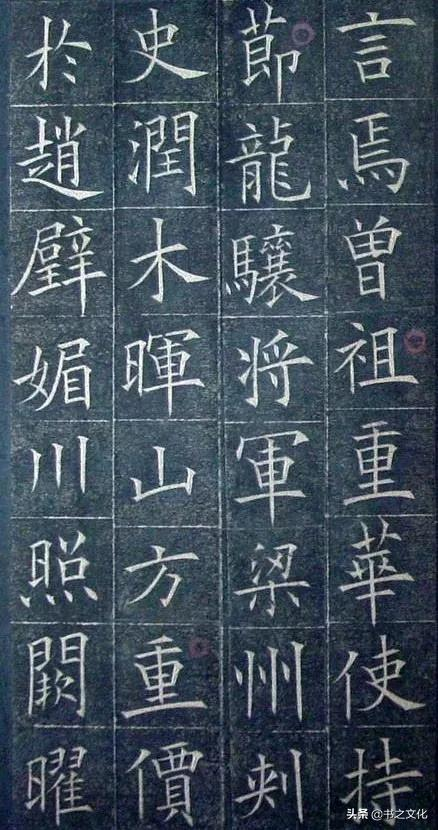 言焉曾祖重華使持
節龍驤将軍梁州刾
史潤木暉山方重價
於趙璧媚川照闕曜
头条 @书之文化